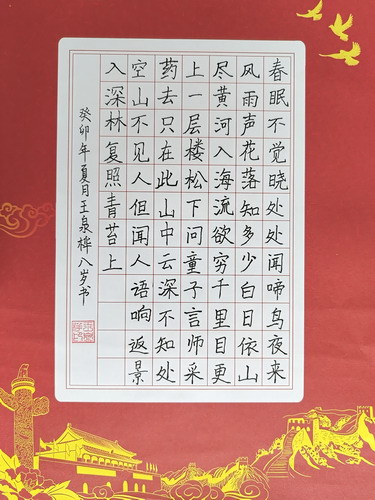 春眠不觉晓处处闻啼鸟夜来
风雨声花落知多少白日依山
尽黄河入海流欲穷千里目更
上一层楼松下问童子言师采
药去只在此山中云深不知处
空山不见人但闻人语响返景
入深林复照青苔上
癸卯年夏月王泉桦八岁书